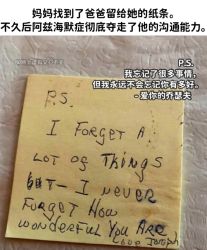 妈妈找到了爸爸留给她的纸条。
不久后阿兹海默症彻底夺走了他的沟通能力。
P.S.
我忘记了很多事情，
但我永远不会忘记你有多好。
- 爱你的乔瑟夫
P.S.
I FORGET A
LOT OF THINGS
BUT - I NEVER
FORGET HOW
WONDERFUL YOU ARE
LOVE JOSEPH